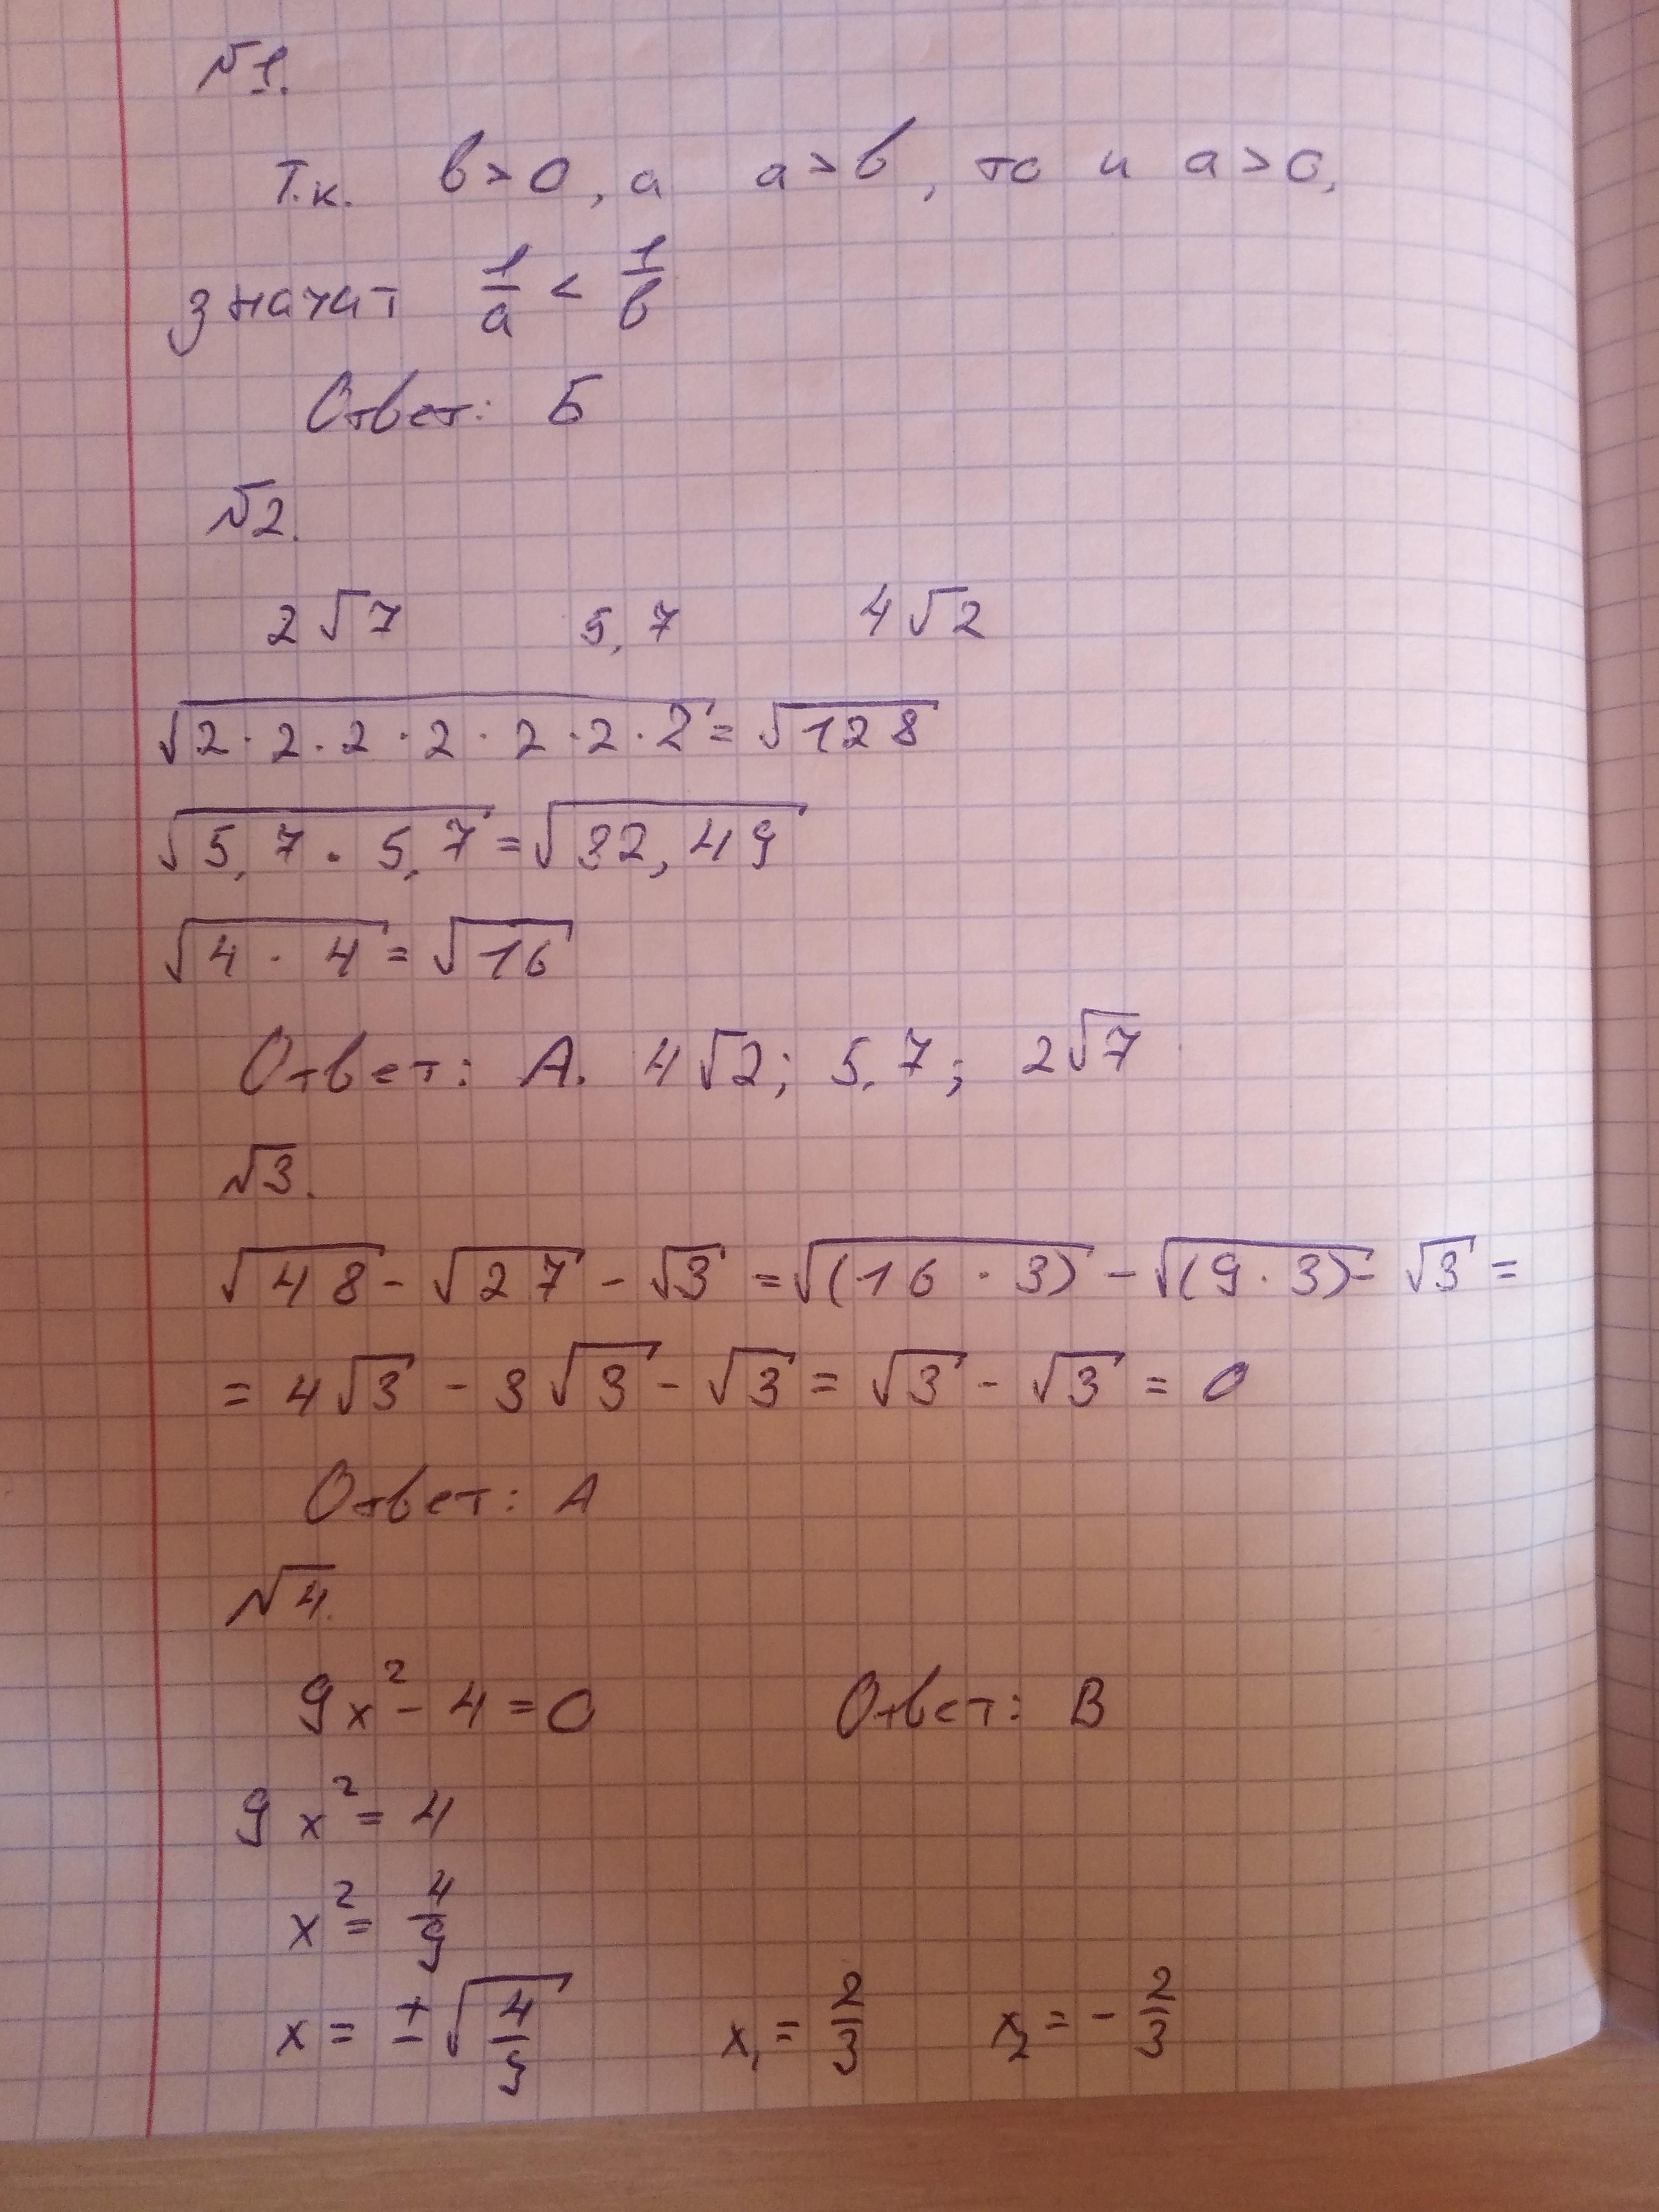 №1.
Т.к. b>0, а a>b, то и a>0,
значит 1/a < 1/b
Ответ: Б
№2.
2√7 5,7 4√2
√(2·2·2·2·2·2·2) = √128
√(5,7·5,7) = √32,49
√(4·4) = √16
Ответ: А. 4√2; 5,7; 2√7
№3.
√48 - √27 - √3 = √(16·3) - √(9·3) - √3 =
= 4√3 - 3√3 - √3 = √3 - √3 = 0
Ответ: А
№4.
9x² - 4 = 0 Ответ: В
9x² = 4
x² = 4/9
x = ±√(4/9) x₁ = 2/3 x₂ = -2/3